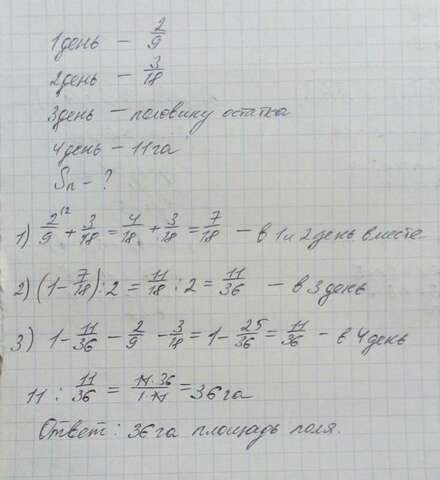 1 день – 2/9
2 день – 3/18
3 день – половину остатка
4 день – 11 га
Sп – ?
1) 2/9 ^12 + 3/18 = 4/18 + 3/18 = 7/18 – в 1 и 2 день вместе
2) (1 - 7/18) : 2 = 11/18 : 2 = 11/36 – в 3 день
3) 1 - 11/36 - 2/9 - 3/18 = 1 - 25/36 = 11/36 – в 4 день
11 : 11/36 = 11·36/1·11 = 36 га
Ответ: 36 га площадь поля.